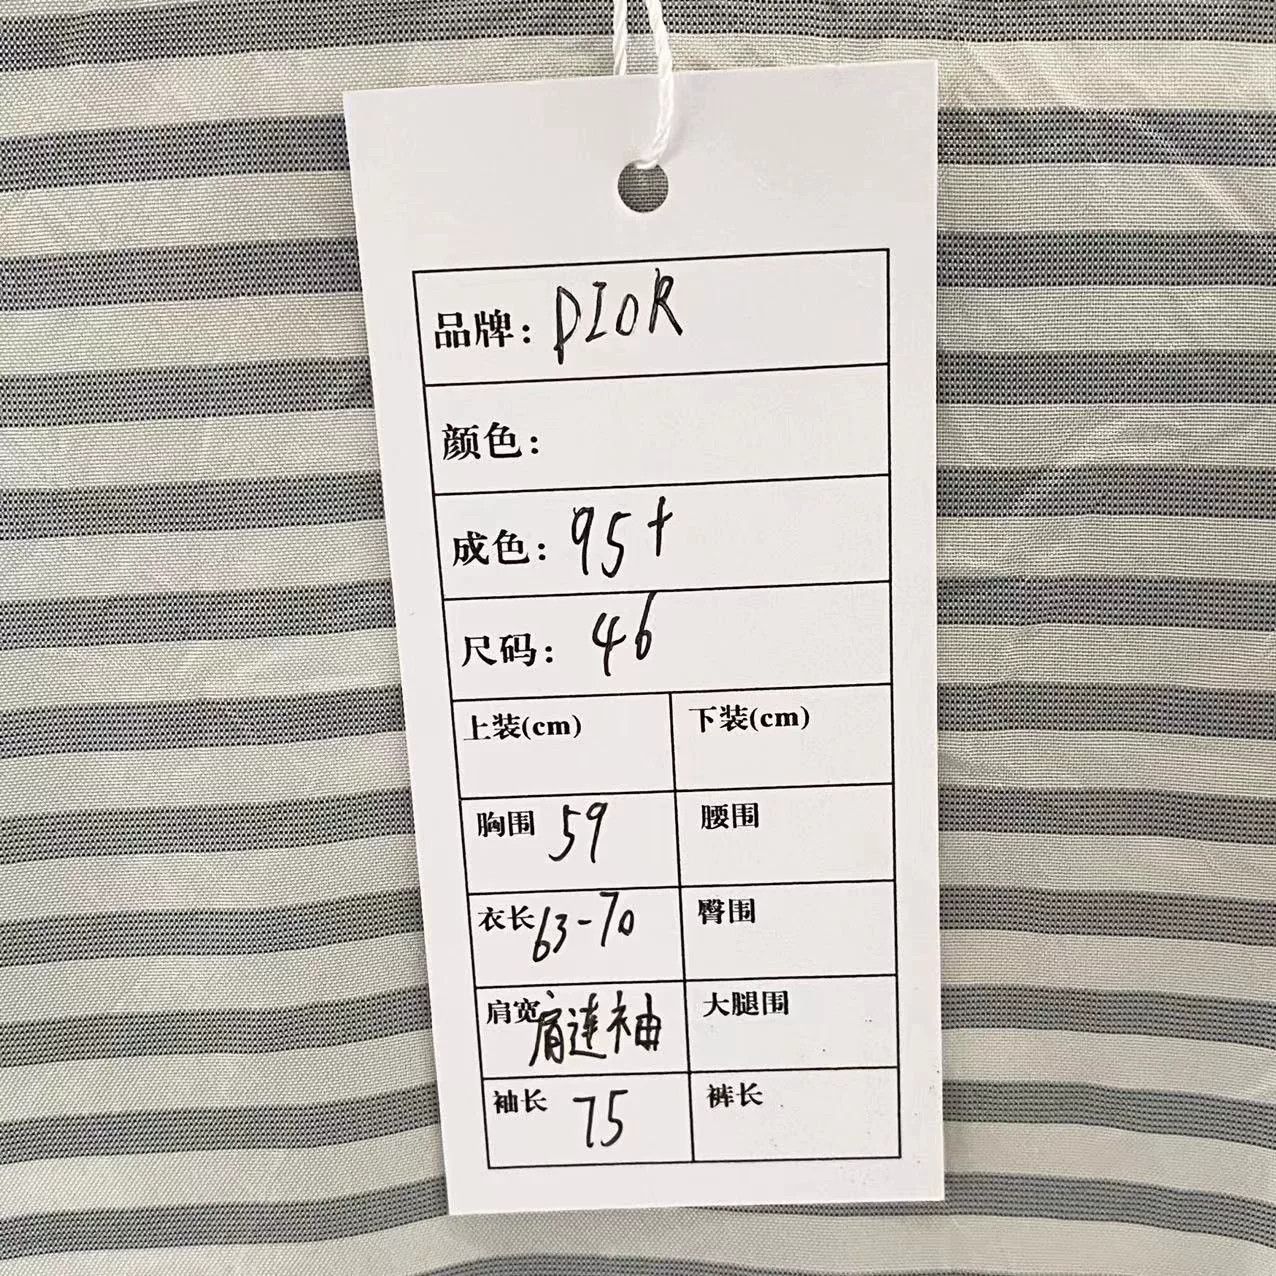 品牌: DIOR
颜色:
成色: 95+
尺码: 46
上装(cm) 下装(cm)
胸围 59 腰围
衣长 63-70 臀围
肩宽 肩连袖 大腿围
袖长 75 裤长